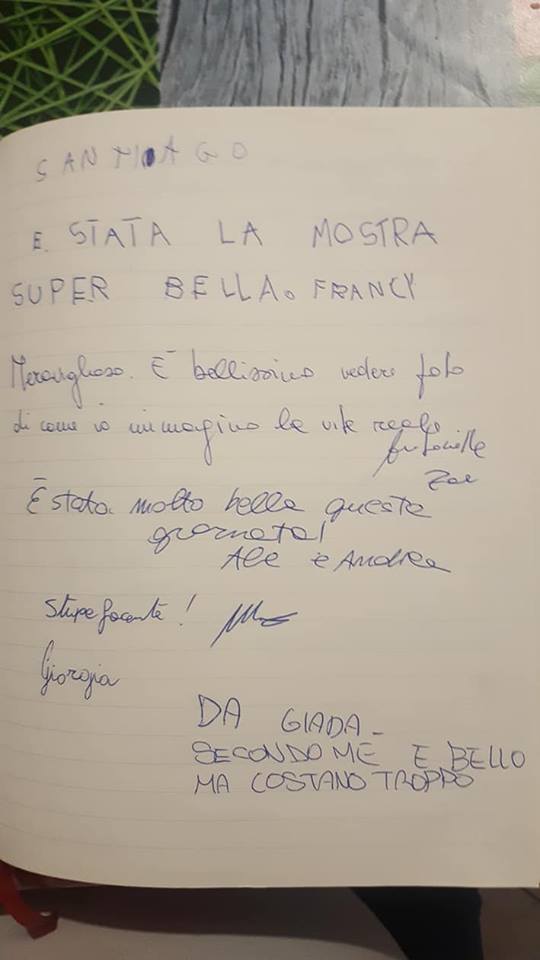 SANTIAGO
E STATA LA MOSTRA
SUPER BELLA. FRANCY
Meraviglioso. È bellissimo vedere foto
di come io immagino la vita reale
Antonella
Zoe
È stata molto bella questa
giornata!
Ale e Andrea
Stupefacente!
Giorgia
DA GIADA-
SECONDO ME E BELLO
MA COSTANO TROPPO